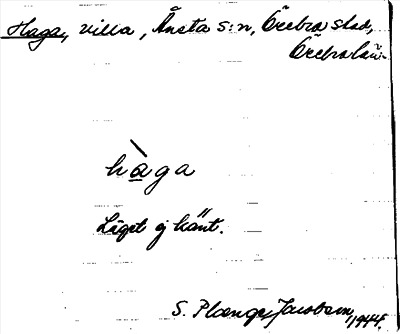 Haga, villa, Ånsta s:n, Örebro stad,
Örebro län.
hàga
Läget ej känt.
S. Plænge Jacobson, 1944.